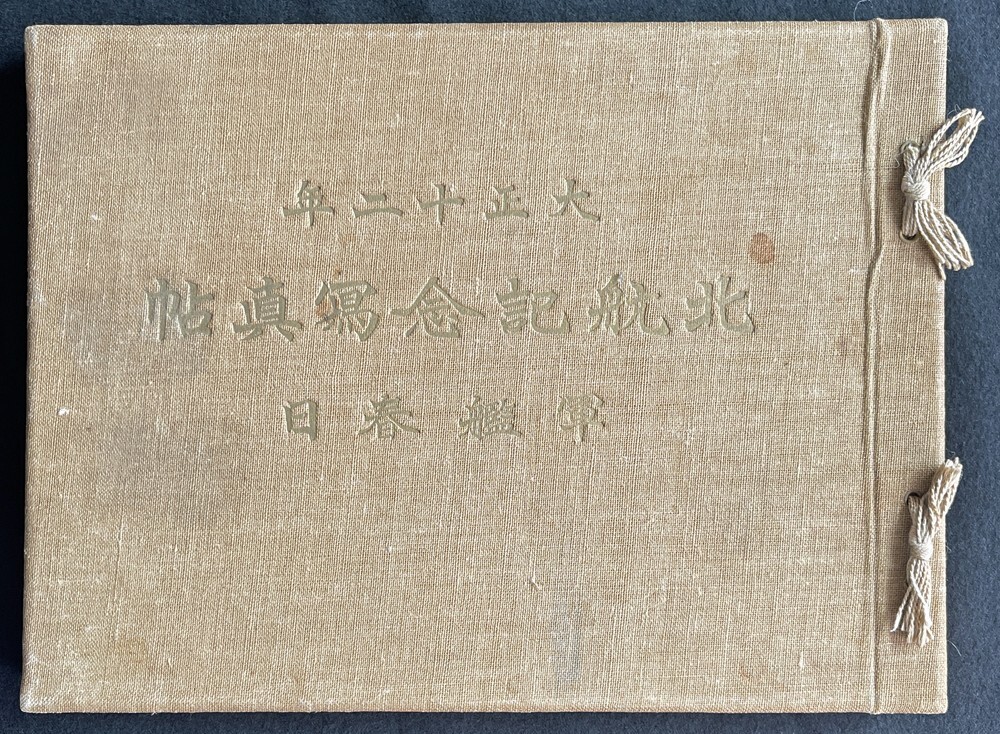 大正十二年
北航記念寫真帖
軍艦春日